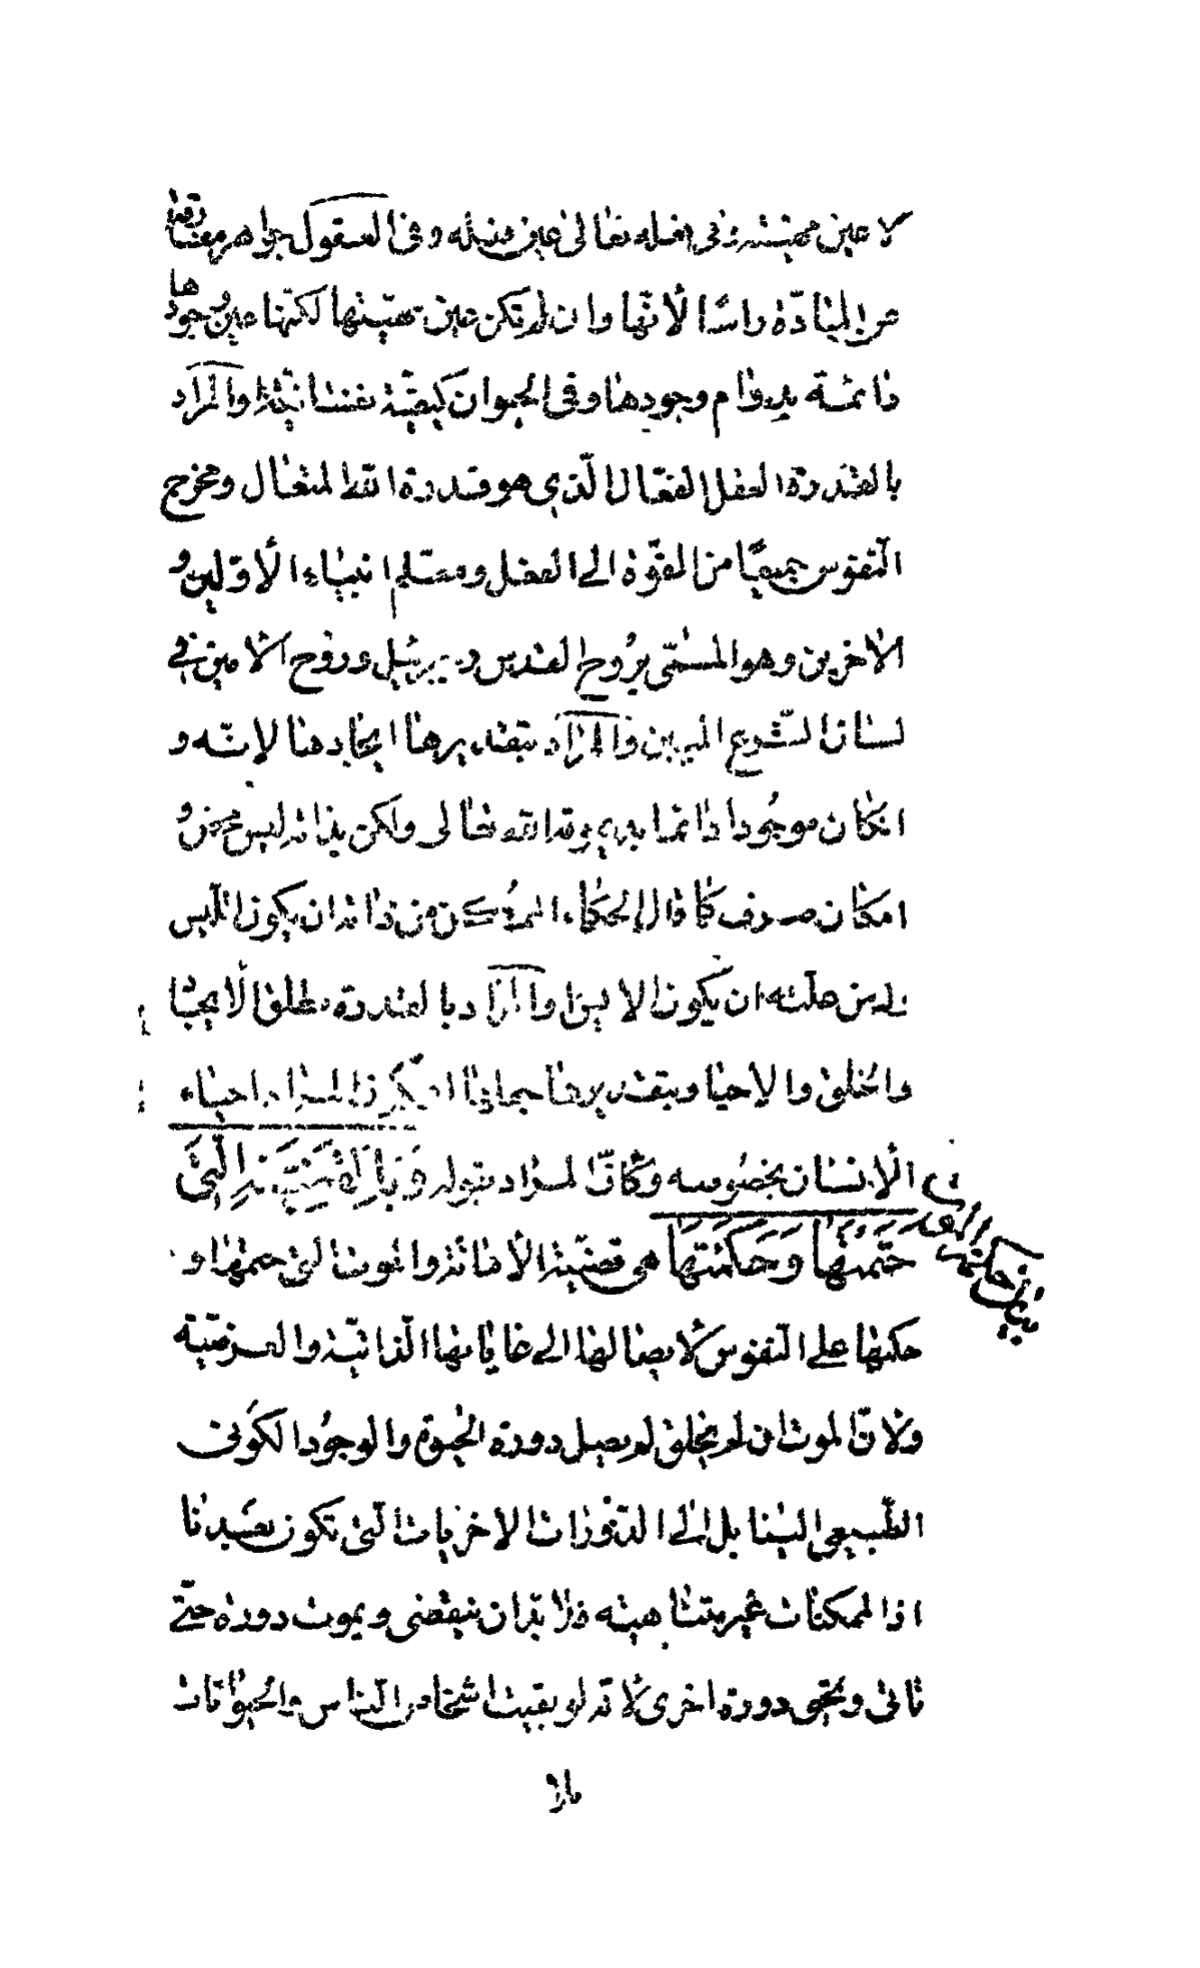 لا عين مهيته وفى فعله تعالى عين فعله وفى العقول جواهر مفارقة
عن المادّة راسًا لأنّها وان لم تكن عين مهيّتها لكنّها عين وجودها
دائمة بدوام وجودها وفى الحيوان كيفيّة نفسانيّة والمراد
بالقدرة العقل الفعّال الّذى هو قدرة الله المتعال ومخرج
النّفوس جميعًا من القوّة الى الفعل ومعلّم انبياء الأوّلين و
الاخرين وهو المسمّى بروح القدس وجبرئيل وروح الامين فى
لسان الشّرع المبين والمراد بتقديرها ايجادها لانّه و
انكان موجودا دائما بديمومة الله تعالى ولكن بذاته ليس محض و
امكان صرف كما قال الحكماء الممكن من ذاته ان يكون ليس
وله من علّته ان يكون الايس والمراد بالقدرة مطلق الايجاد
والخلق والاحياء وبتقديرها احياء
الانسان بخصوصه وكانّ المراد بقوله وبالقضيّة الّتى
حَتَمْتَها وَحَكَمْتَها هى قضيّة الأماتة والموت الّتى حتمها و
حكمها على النّفوس لايصالها الى غاياتها الذّاتيّة والعرضيّة
ولانّ الموت ان لم يخلق لم يصل دورة الحيوة والوجود الكونى
الطّبيعى الينا بل الى الذّوات الاخريات الّتى تكون بعدنا
اذا الممكنات غير متناهية فلا بدّ ان ينقضى ويموت دورة حتّى
تاتى ويحيى دورة اخرى لانّه لو بقيت اشخاص النّاس والحيوانات